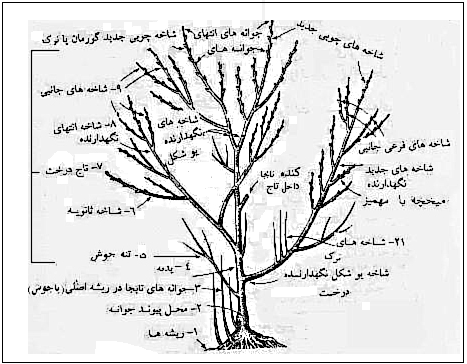 شاخه چوبی جدید گورمان یا ترک
جوانه های انتهای
جوانه های
شاخه های چوبی جدید
۹- شاخه های جانبی
۸- شاخه انتهای
نگهدارنده
شاخه های
نگهدارنده
یو شکل
شاخه های فرعی جانبی
شاخه های جدید
نگهدارنده
میخچه یا مهمیز
۷- تاج درخت
کننده نابجا
داخل تاج
۶- شاخه ثانویه
۵- تنه جوش
۴-
۲۱- شاخه های
ترک
شاخه یو شکل نگهدارنده
درخت
۳- جوانه های نابجا در ریشه اصلی (پاجوش)
۲- محل پیوند جوانه
۱- ریشه ها